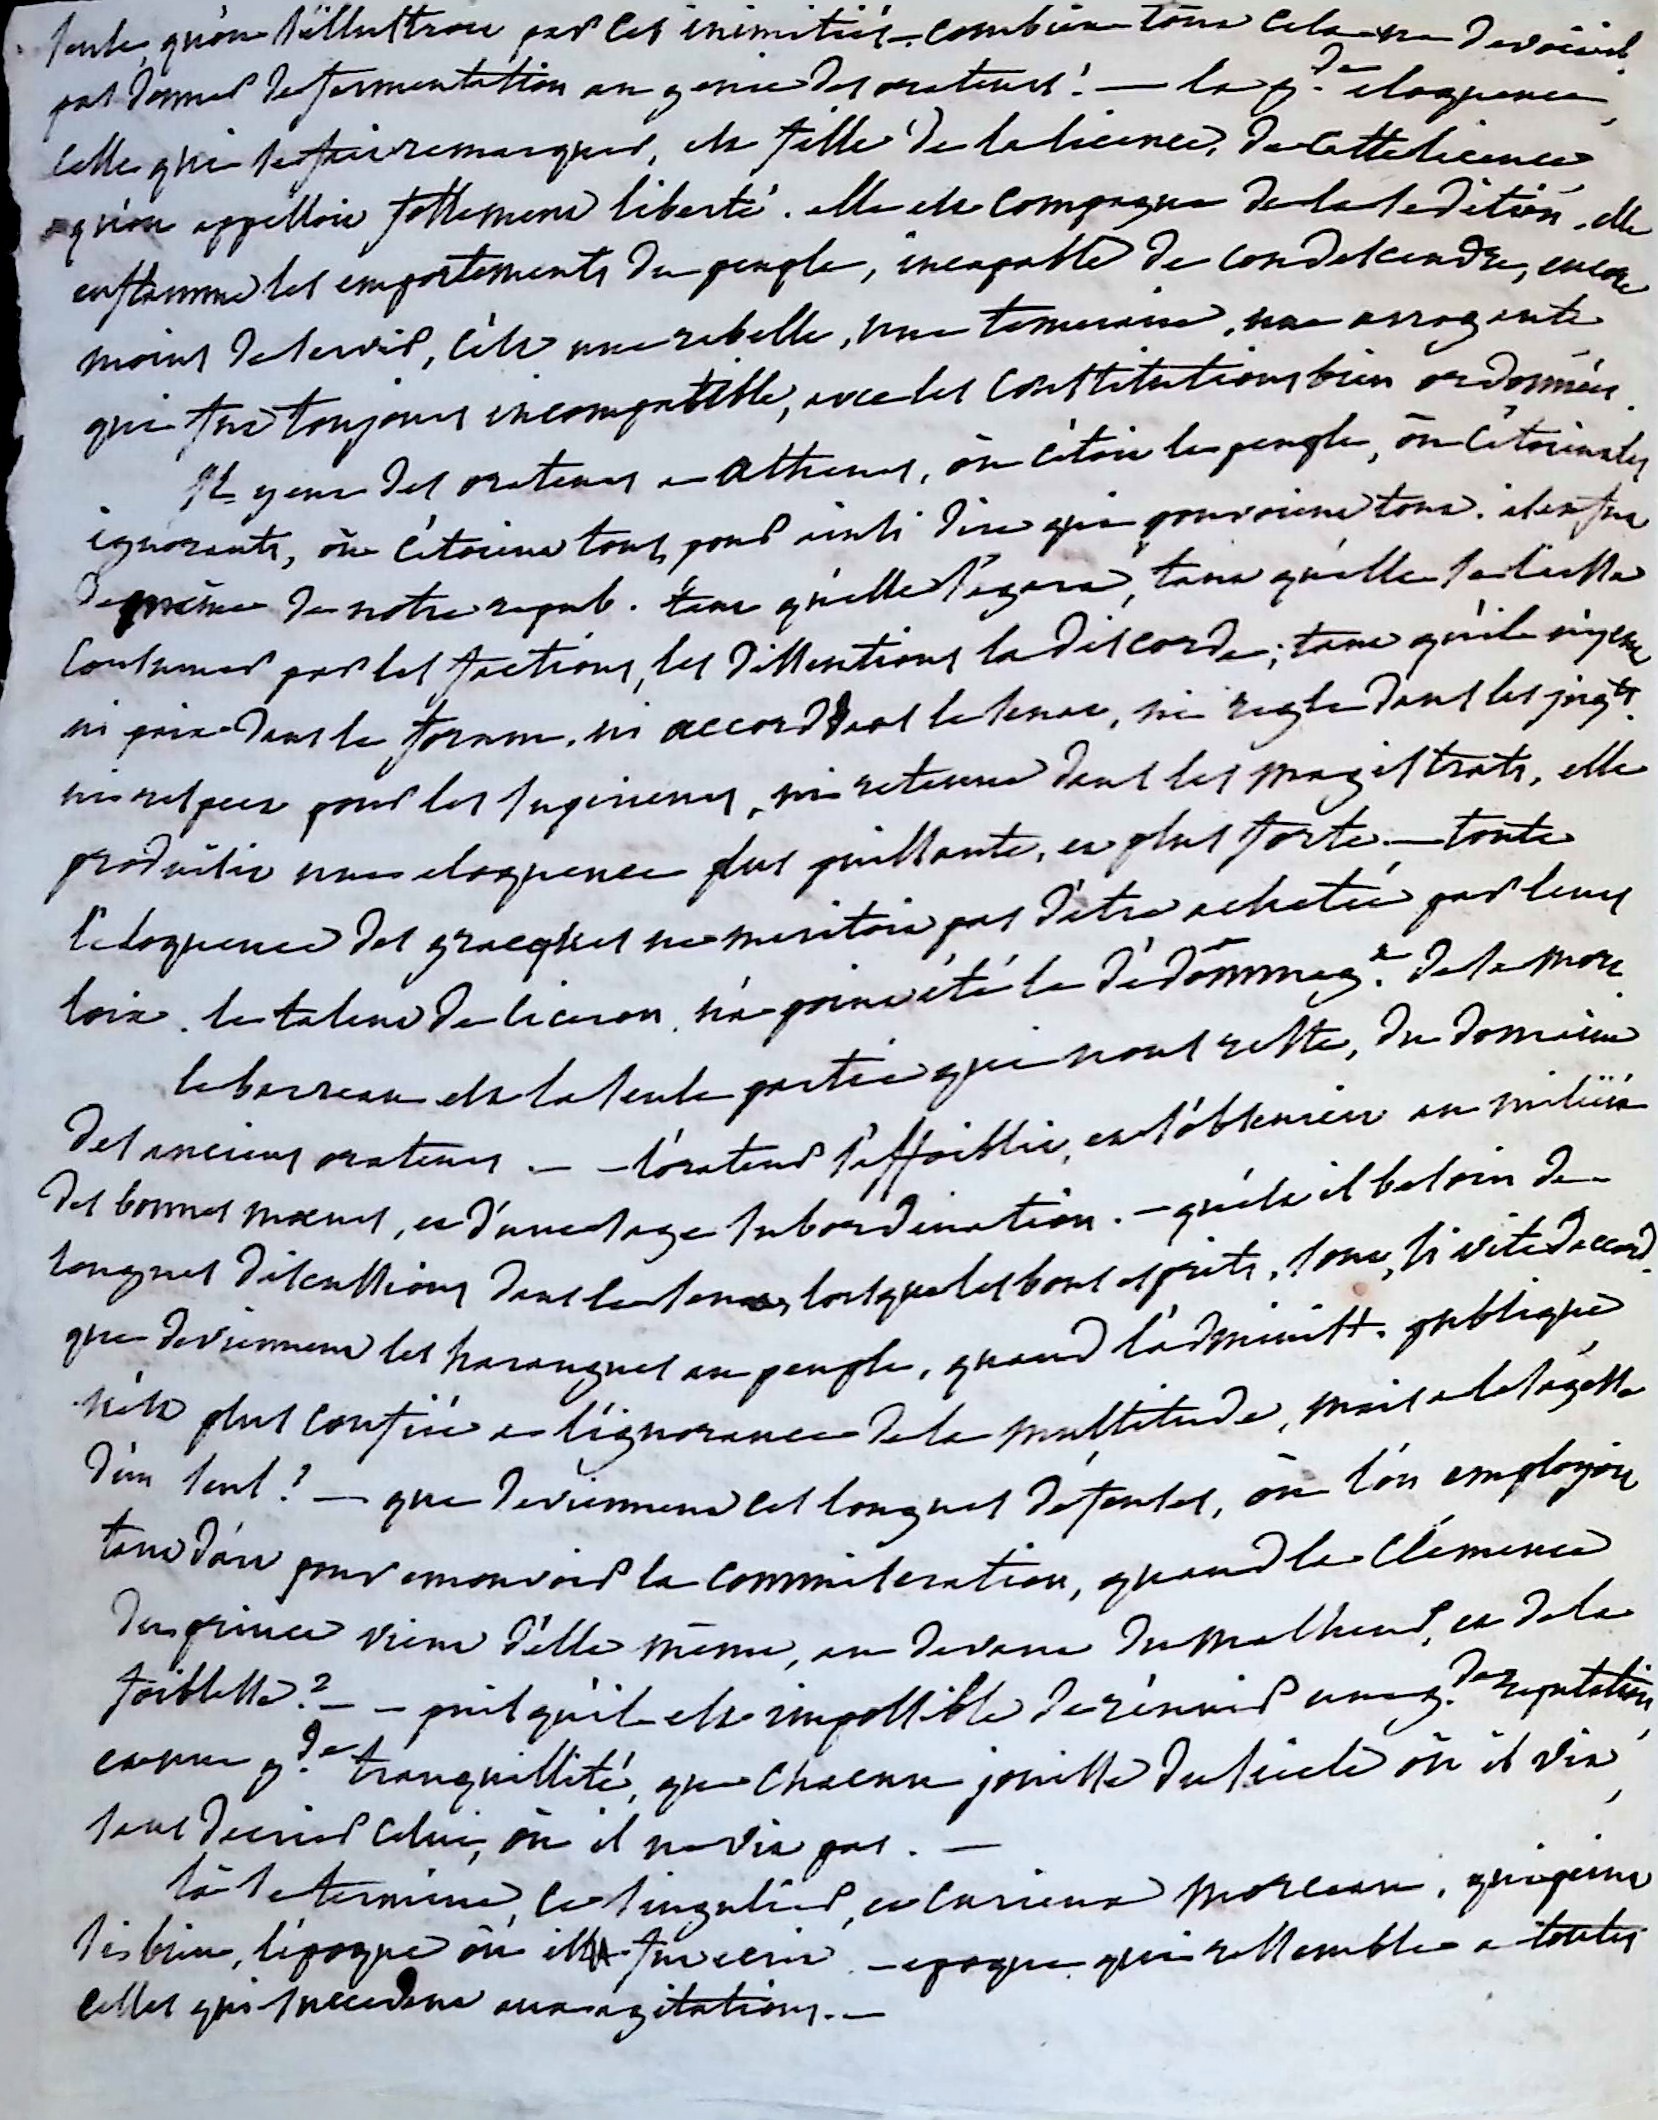 seule, qu'on s'illustroit par ces inimitiés. combien tout cela ne devoit il
pas donner de fermentation au genie des orateurs! — la g.de eloquence,
celle qui se fait remarquer, est fille de la licence, de cette licence
qu'on appelloit follement liberté. elle est compagne de la sedition, elle
enflamme les emportements du peuple, incapable de condescendre, encore
moins de servir, c'est une rebelle, une temeraire, une arrogante
qui fut toujours incompatible, avec les constitutions bien ordonnées.
Il y eut des orateurs a Athenes, où c'étoit le peuple, où c'étoient les
ignorants, où c'étoient tous, pour ainsi dire qui pouvoient tout. il en fut
de même de notre repub. tant qu'elle s'egara, tant qu'elle se laissa
consumer par les factions, les dissentions la discorde; tant qu'il n'y eut
ni paix dans le forum, ni accord dans le senat, ni regle dans les jug.ts
ni respect pour les superieurs, ni retenue dans les magistrats, elle
produisit une eloquence plus puissante, et plus forte. — toute
l'eloquence des gracques ne meritoit pas d'être achetée par leurs
loix. le talent de ciceron, n'a point été le dédommag.t de sa mort.
le barreau est la seule partie qui nous reste, du domaine
des anciens orateurs. — — l'orateur s'affoiblit, et s'obscurcit au milieu
des bonnes moeurs, et d'une sage subordination. — qu'est il besoin de
longues discussions dans le senat, lorsque les bons esprits, sont, si vite d'accord.
que deviennent les harangues au peuple, quand l'administ. publique
n'est plus confiée a l'ignorance de la multitude, mais a la sagesse
d'un seul? — que deviennent ces longues défenses, où l'on employoit
tant d'art pour emouvoir la commiseration, quand la clémence
du prince vient d'elle même, au devant du malheur, et de la
foiblesse? — — puisqu'il est impossible de réunir une g.de reputation,
et une g.de tranquillité, que chacun jouisse du siecle où il vit,
sans decrier celui, où il ne vit pas. —
là se termine, ce singulier, et curieux morceau, qui peint
si bien, l'époque où il fut ecrit. — epoque qui ressemble a toutes
celles qui succedent aux agitations. —